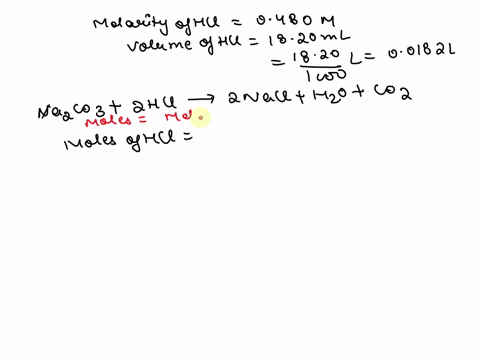 Molarity of HCl = 0.480 M
Volume of HCl = 18.20 mL
= 18.20/1000 L = 0.0182 L
Na2CO3 + 2HCl → 2NaCl + H2O + CO2
Moles = Mol
Moles of HCl =